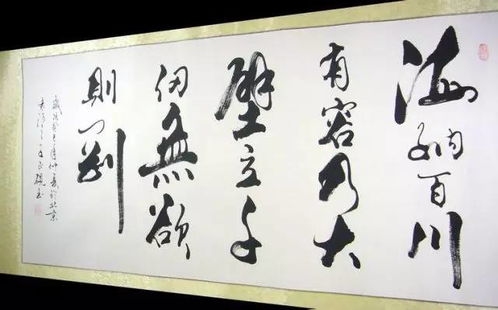 海納百川
有容乃大
壁立千
仞無欲
則剛
北京